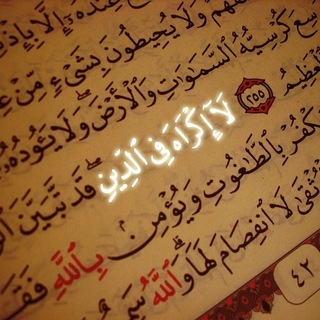 عِندَهُۥٓ إِلَّا بِإِذْ
وَلَا يُحِيطُونَ بِشَىْءٍ مِّنْ عِ
سِعَ كُرْسِيُّهُ ٱلسَّمَٰوَٰتِ وَٱلْأَرْضَ ۖ وَلَا يَـُٔودُهُۥ
لْعَظِيمُ ٢٥٥ لَآ إِكْرَاهَ فِى ٱلدِّينِ ۖ قَد تَّبَيَّنَ ٱلر
كْفُرْ بِٱلطَّٰغُوتِ وَيُؤْمِنۢ بِٱللَّهِ فَقَ
ثْقَىٰ لَا ٱنفِصَامَ لَهَا ۗ وَٱللَّهُ سَمِ
٤٢